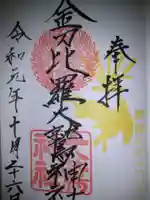 奉拝
金刀比羅大鷲神社
令和元年十月二十六日